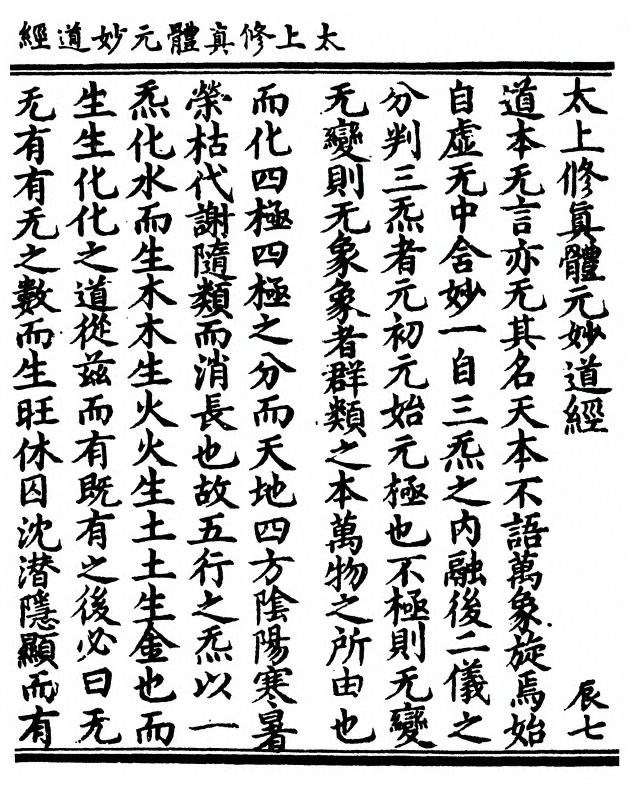 太上修真體元妙道經
太上修真體元妙道經 辰七
道本无言亦无其名天本不語萬象旋焉始
自虛无中含妙一自三炁之內融後二儀之
分判三炁者元初元始元極也不極則无變
无變則无象象者群類之本萬物之所由也
而化四極四極之分而天地四方陰陽寒暑
榮枯代謝隨類而消長也故五行之炁以一
炁化水而生木木生火火生土土生金也而
生生化化之道從茲而有既有之後必曰无
无有有无之數而生旺休囚沈潜隱顯而有